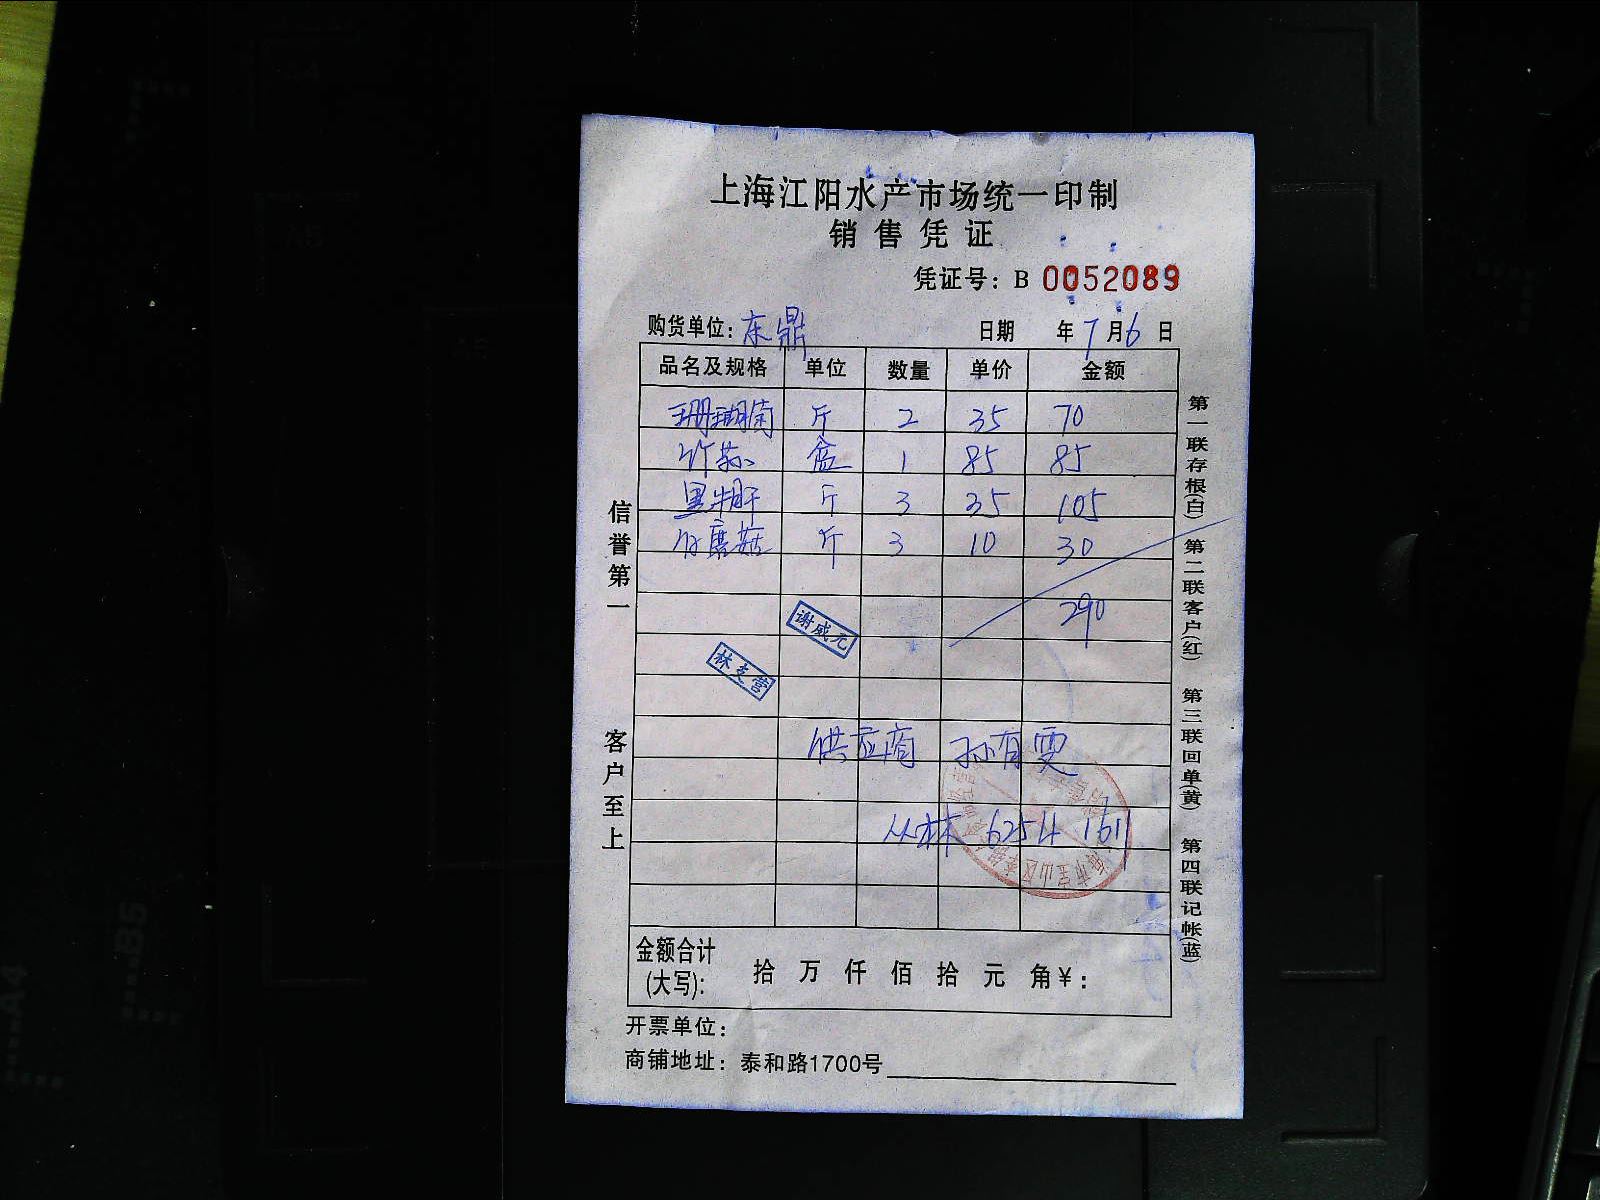 上海江阳水产市场统一印制
销售凭证
凭证号：B 0052089
购货单位：东鼎 日期 年7月6日
品名及规格 单位 数量 单价 金额
珊瑚菌 斤 2 35 70
竹荪 盒 1 85 85
黑牛肝 斤 3 35 105
蘑菇 斤 3 10 30
290
谢威元
林支营
供应商 孙有雯
丛林 6254 1611
金额合计
(大写)： 拾 万 仟 佰 拾 元 角￥：
开票单位：
商铺地址：泰和路1700号
信誉第一
客户至上
第一联存根(白)
第二联客户(红)
第三联回单(黄)
第四联记帐(蓝)